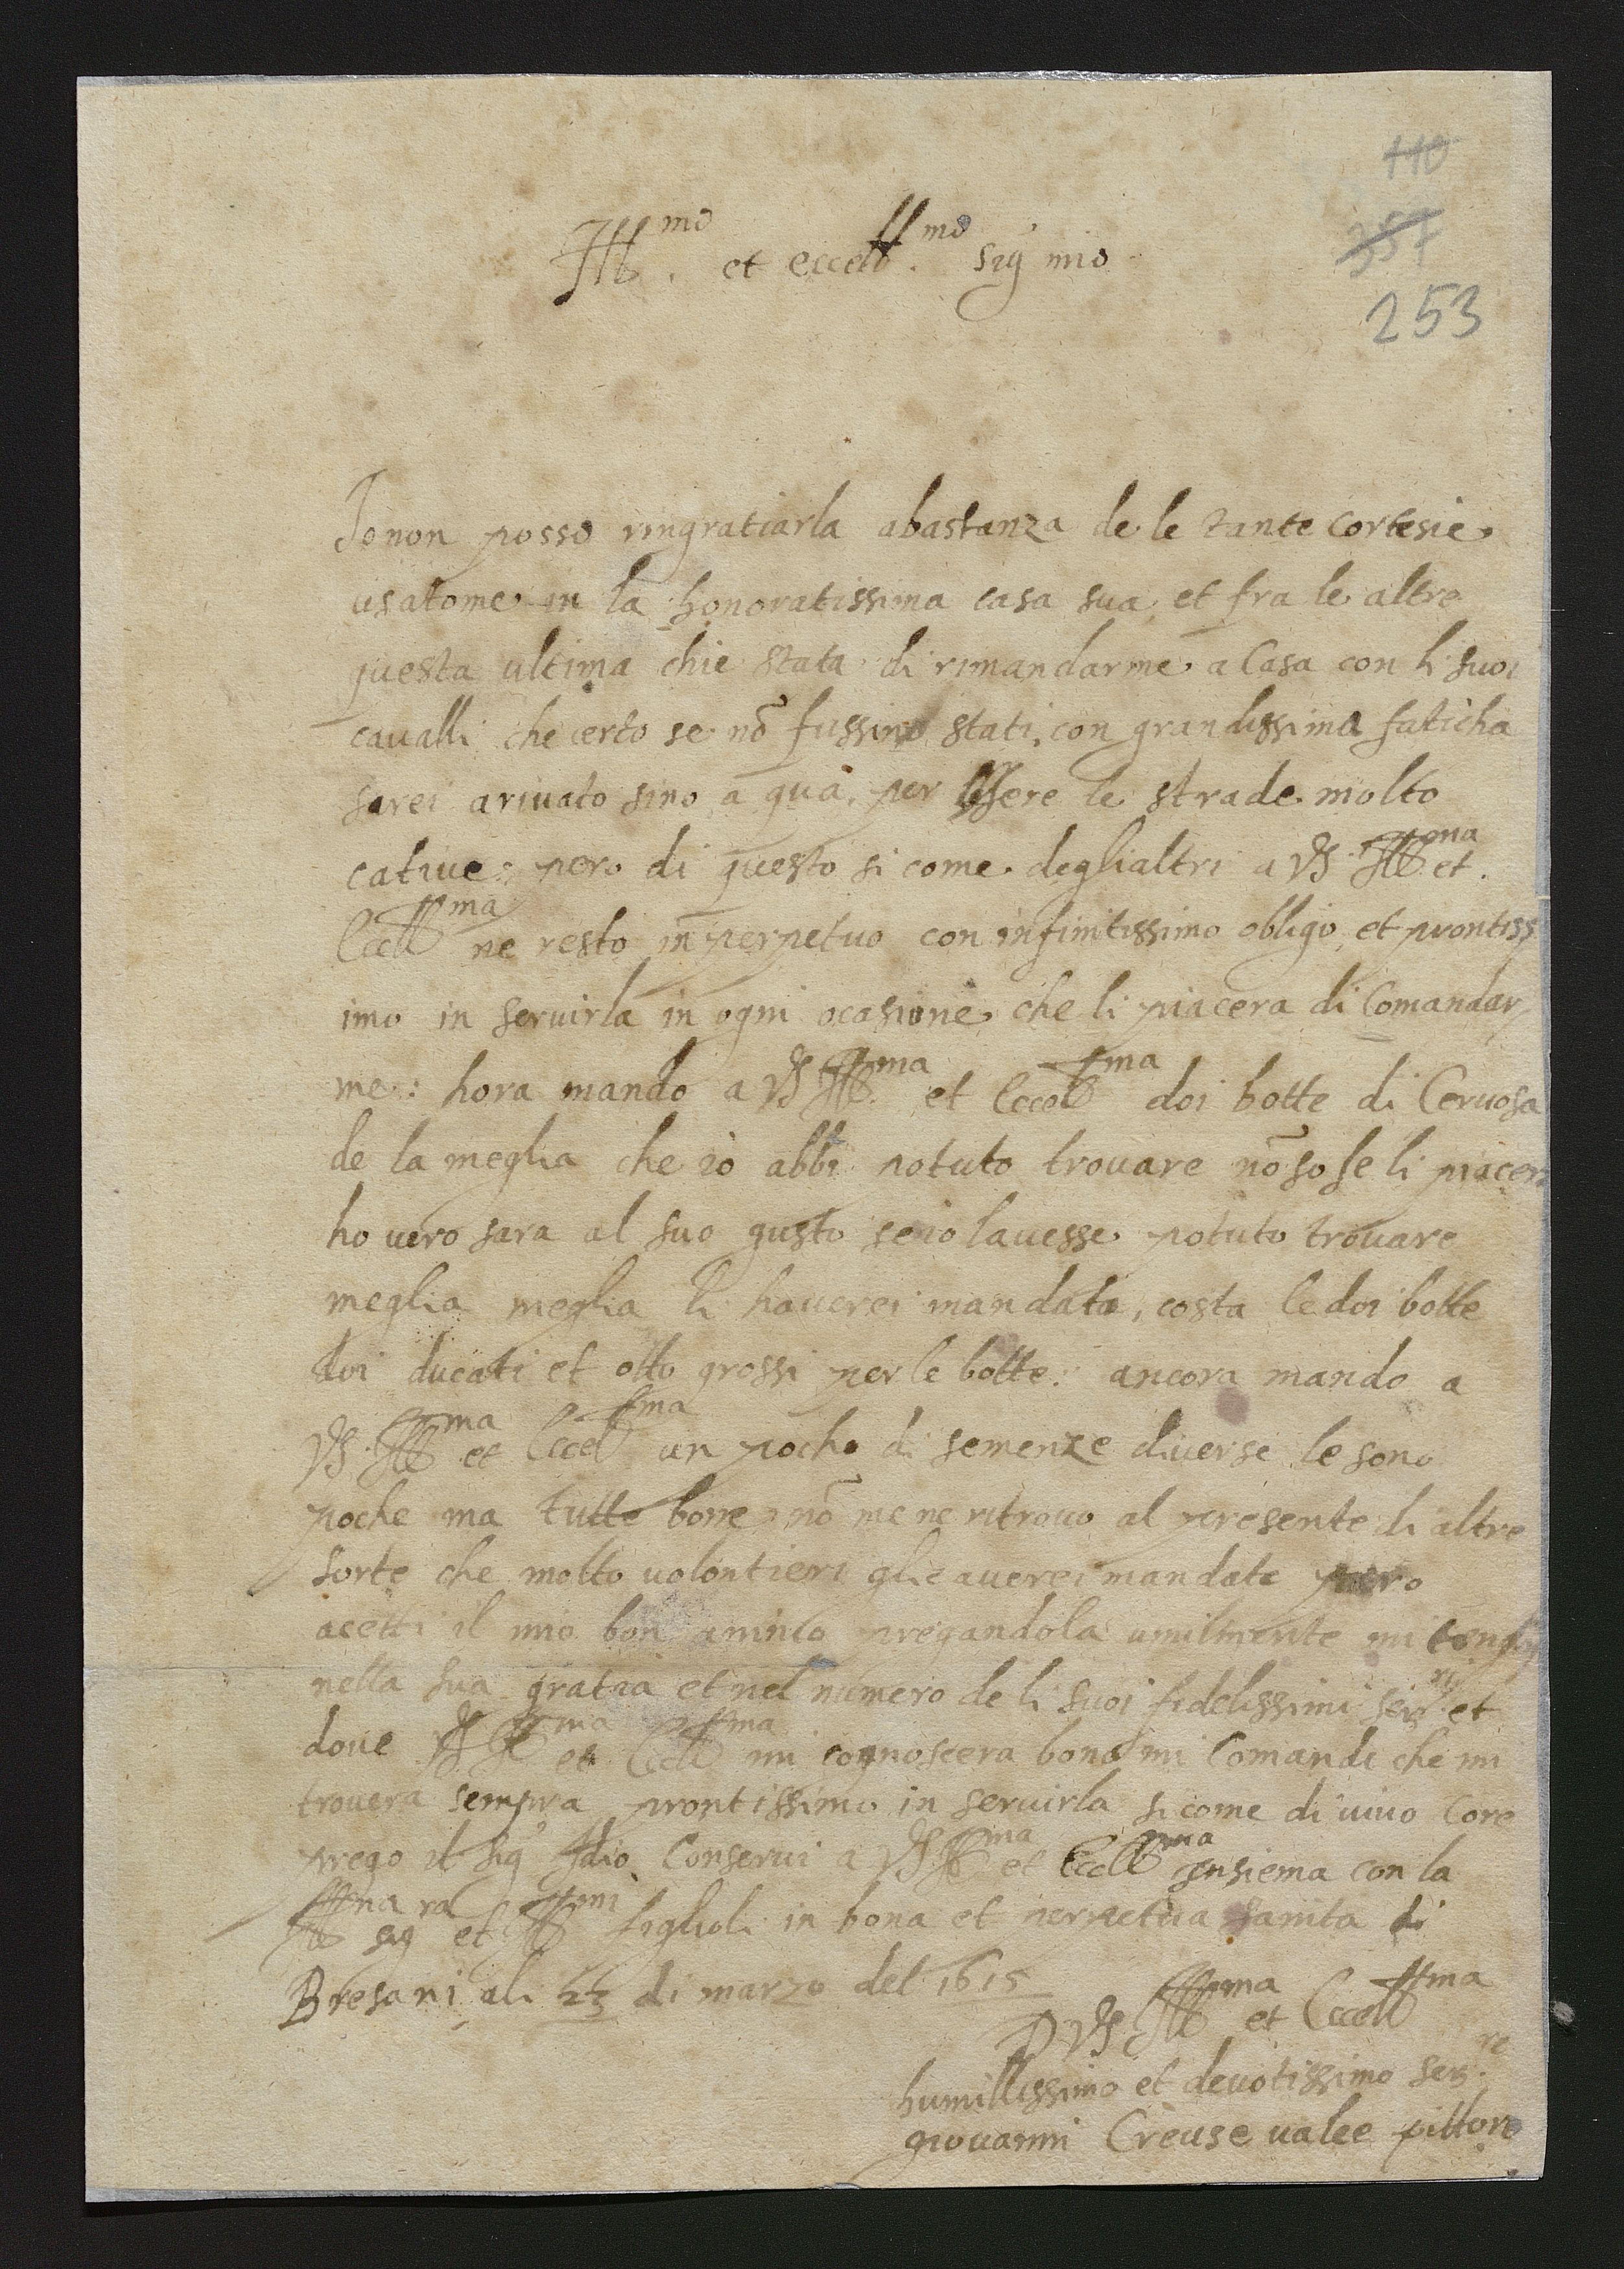 110
357
253
Ill.mo et eccell.mo sig mio
Io non posso ringratiarla abastanza de le tante cortesie
usatome in la honoratissima casa sua et fra le altre
questa ultima chie stata di rimandarme a Casa con li suoi
cavalli che certo se nõ fussino stati con grandissima faticha
sarei arivato sino a qua, per essere le strade molto
cative: pero di questo si come deglialtri a VS Illma et
Eccellma ne resto in perpetuo con infinitissimo obligo et prontiss
imo in servirla in ogni ocasione che li piacera di Comandar
me: hora mando a VS Illma et Eccellma doi botte di Cervosa
de la meglia che io abbi potuto trovare nõ so se li piacera
ho vero sara al suo gusto se io lavesse potuto trovare
meglia meglia li haverei mandata, costa le doi botte
doi ducati et otto grossi per le botte: ancora mando a
VS Illma et Eccellma un pocho di semenze diverse le sono
poche ma tutte bone, nõ me ne ritrovo al presente di altre
sorte che molto volontieri glie averei mandate pero
acetti il mio bon animo pregandola umilmente mi tenghi
nella sua gratia et nel numero de li suoi fidelissimi serri et
dove VS Illma et Eccellma mi cognoscera bono mi Comandi che mi
trovera sempra prontissimo in servirla si come di vivo Core
prego il sig Idio Conservi a VS Illma et Eccellma insiema con la
Illma sigra et Illmi figliuoli in bona et perpetua sanita di
Bresani ali 23 di marzo del 1615
D VS Illma et Eccellma
humillissimo et devotissimo serre
giovanni Creuse valee pittore